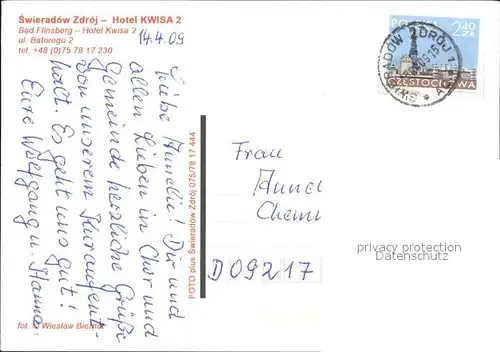 Świeradów Zdrój – Hotel KWISA 2
Bad Flinsberg – Hotel Kwisa 2
ul. Batorego 2
tel. +48 (0)75 78 17 230
14.4.09
Liebe Annelie! Dir und
allen Lieben in Chor und
Gemeinde herzliche Grüße
von unserem Kuraufent-
halt. Es geht uns gut!
Eure Wolfgang u. Hanna.
fot. © Wiesław Biernat
FOTO plus Świeradów Zdrój 075/78 17 444
POLSKA 2,40 ZŁ
CZĘSTOCHOWA
Frau
Annel
Chemn
D 09217
privacy protection
VERSANDPOSTEN